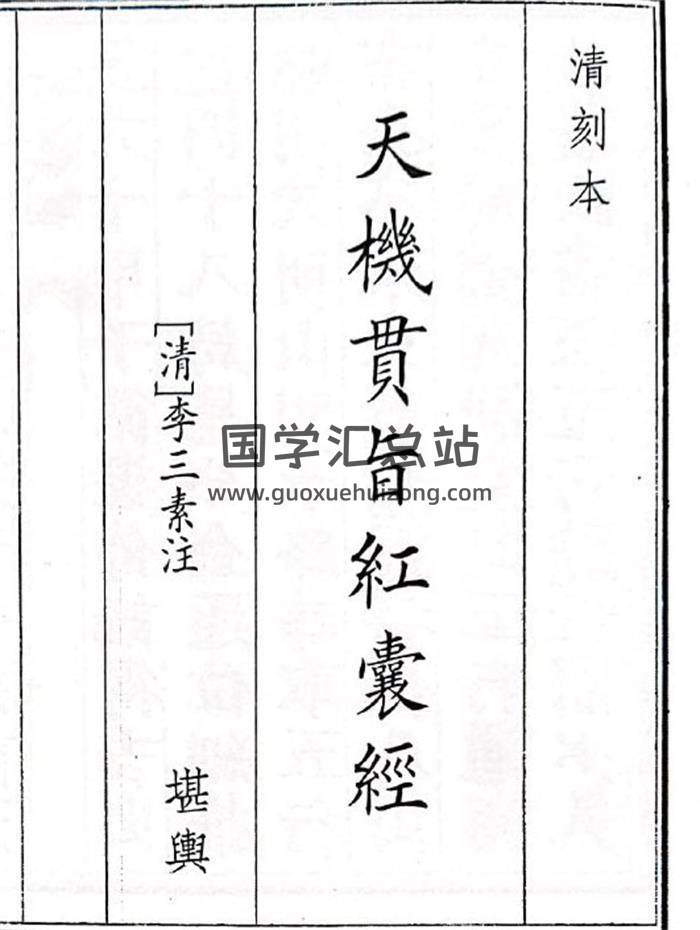 清刻本
天機貫旨紅囊經
[清]李三素注
堪輿
国学汇总站
www.guoxuehuizong.com